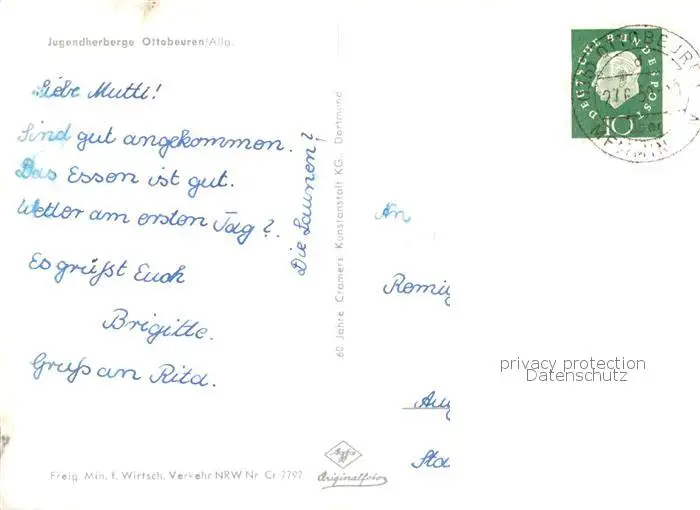 Jugendherberge Ottobeuren/Allg.
Liebe Mutti!
Sind gut angekommen.
Das Essen ist gut.
Wetter am ersten Tag?
Die Launen?
Es grüßt Euch
Brigitte.
Gruß an Rita.
Freig. Min. f. Wirtsch. Verkehr NRW Nr. Cr 7797
60 Jahre Cramers Kunstanstalt KG., Dortmund
Agfa
Originalfoto
DEUTSCHE BUNDESPOST
10
An
privacy protection
Datenschutz